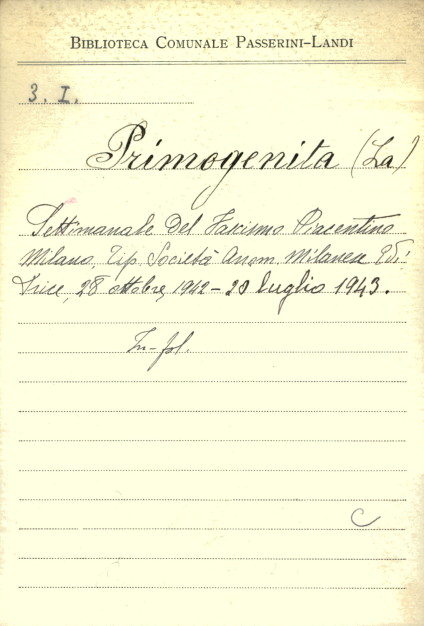 BIBLIOTECA COMUNALE PASSERINI-LANDI
3. I.
Primogenita (La)
Settimanale del Fascismo Piacentino
Milano, Tip. Società Anom. Milanese Edi-
trice, 28 ottobre 1942 - 20 luglio 1943.
In-fol.
C